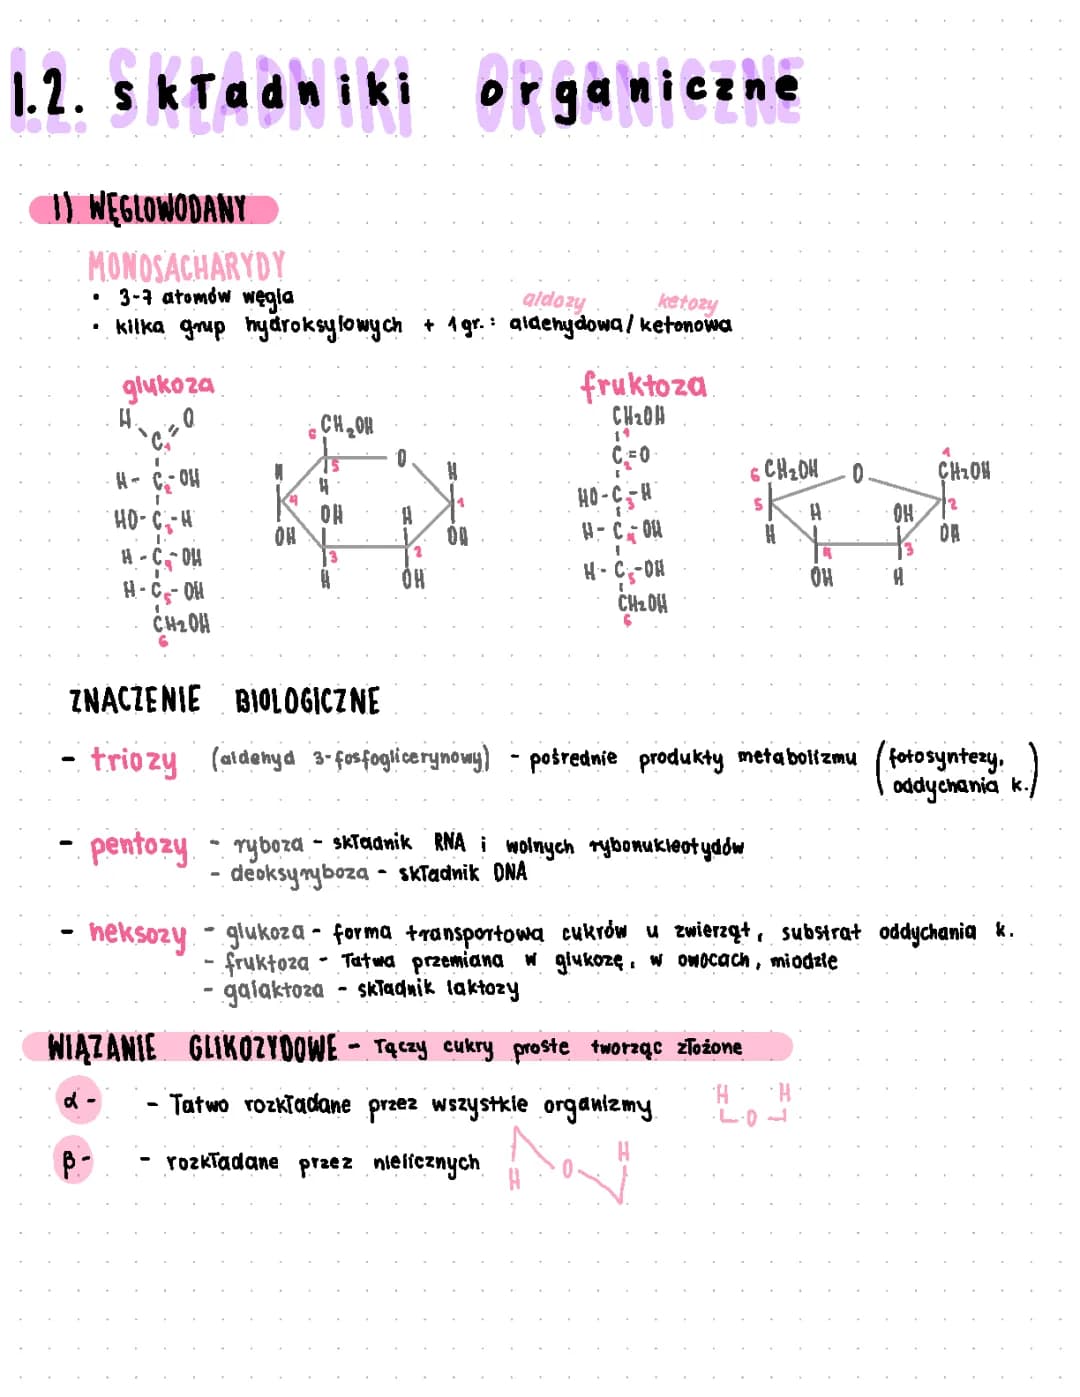 1.2. SKŁADNIKI ORGANICZNE
1) WĘGLOWODANY
MONOSACHARYDY
• 3-7 atomów węgla
aldozy ketozy
• kilka grup hydroksylowych + 1 gr.: aldehydowa/ ketonowa
glukoza
H O
C 1
H - C 2 - OH
HO - C 3 - H
H - C 4 - OH
H - C 5 - OH
CH2OH
6
6 CH2OH
5 O
H H H
4 1
OH OH H OH
3 2
H OH
fruktoza
CH2OH
1
C 2 = O
HO - C 3 - H
H - C 4 - OH
H - C 5 - OH
CH2OH
6
1
6 CH2OH O CH2OH
5 2
H H OH OH
4 3
OH H
ZNACZENIE BIOLOGICZNE
- triozy (aldehyd 3-fosfoglicerynowy) - pośrednie produkty metabolizmu (fotosyntezy,
oddychania k.)
- pentozy - ryboza - składnik RNA i wolnych rybonukleotydów
- deoksyryboza - składnik DNA
- heksozy - glukoza - forma transportowa cukrów u zwierząt, substrat oddychania k.
- fruktoza - łatwa przemiana w glukozę, w owocach, miodzie
- galaktoza - składnik laktozy
WIĄZANIE GLIKOZYDOWE - łączy cukry proste tworząc złożone
α - - łatwo rozkładane przez wszystkie organizmy
H H
O
β - - rozkładane przez nielicznych
H O H